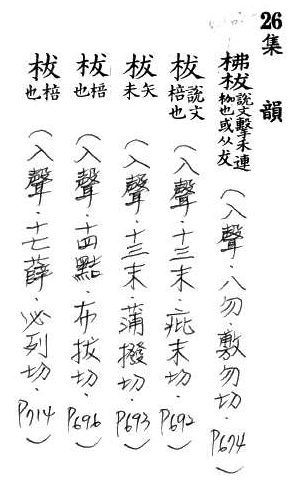 26集韻
柫柭說文擊禾連枷也或从犮（入聲·八勿·敷勿切·P674）
柭說文棓也（入聲·十三末·䟦末切·P692）
柭矢末（入聲·十三末·蒲撥切·P693）
柭棓也（入聲·十四黠·布拔切·P696）
柭棓也（入聲·十七薛·必列切·P714）